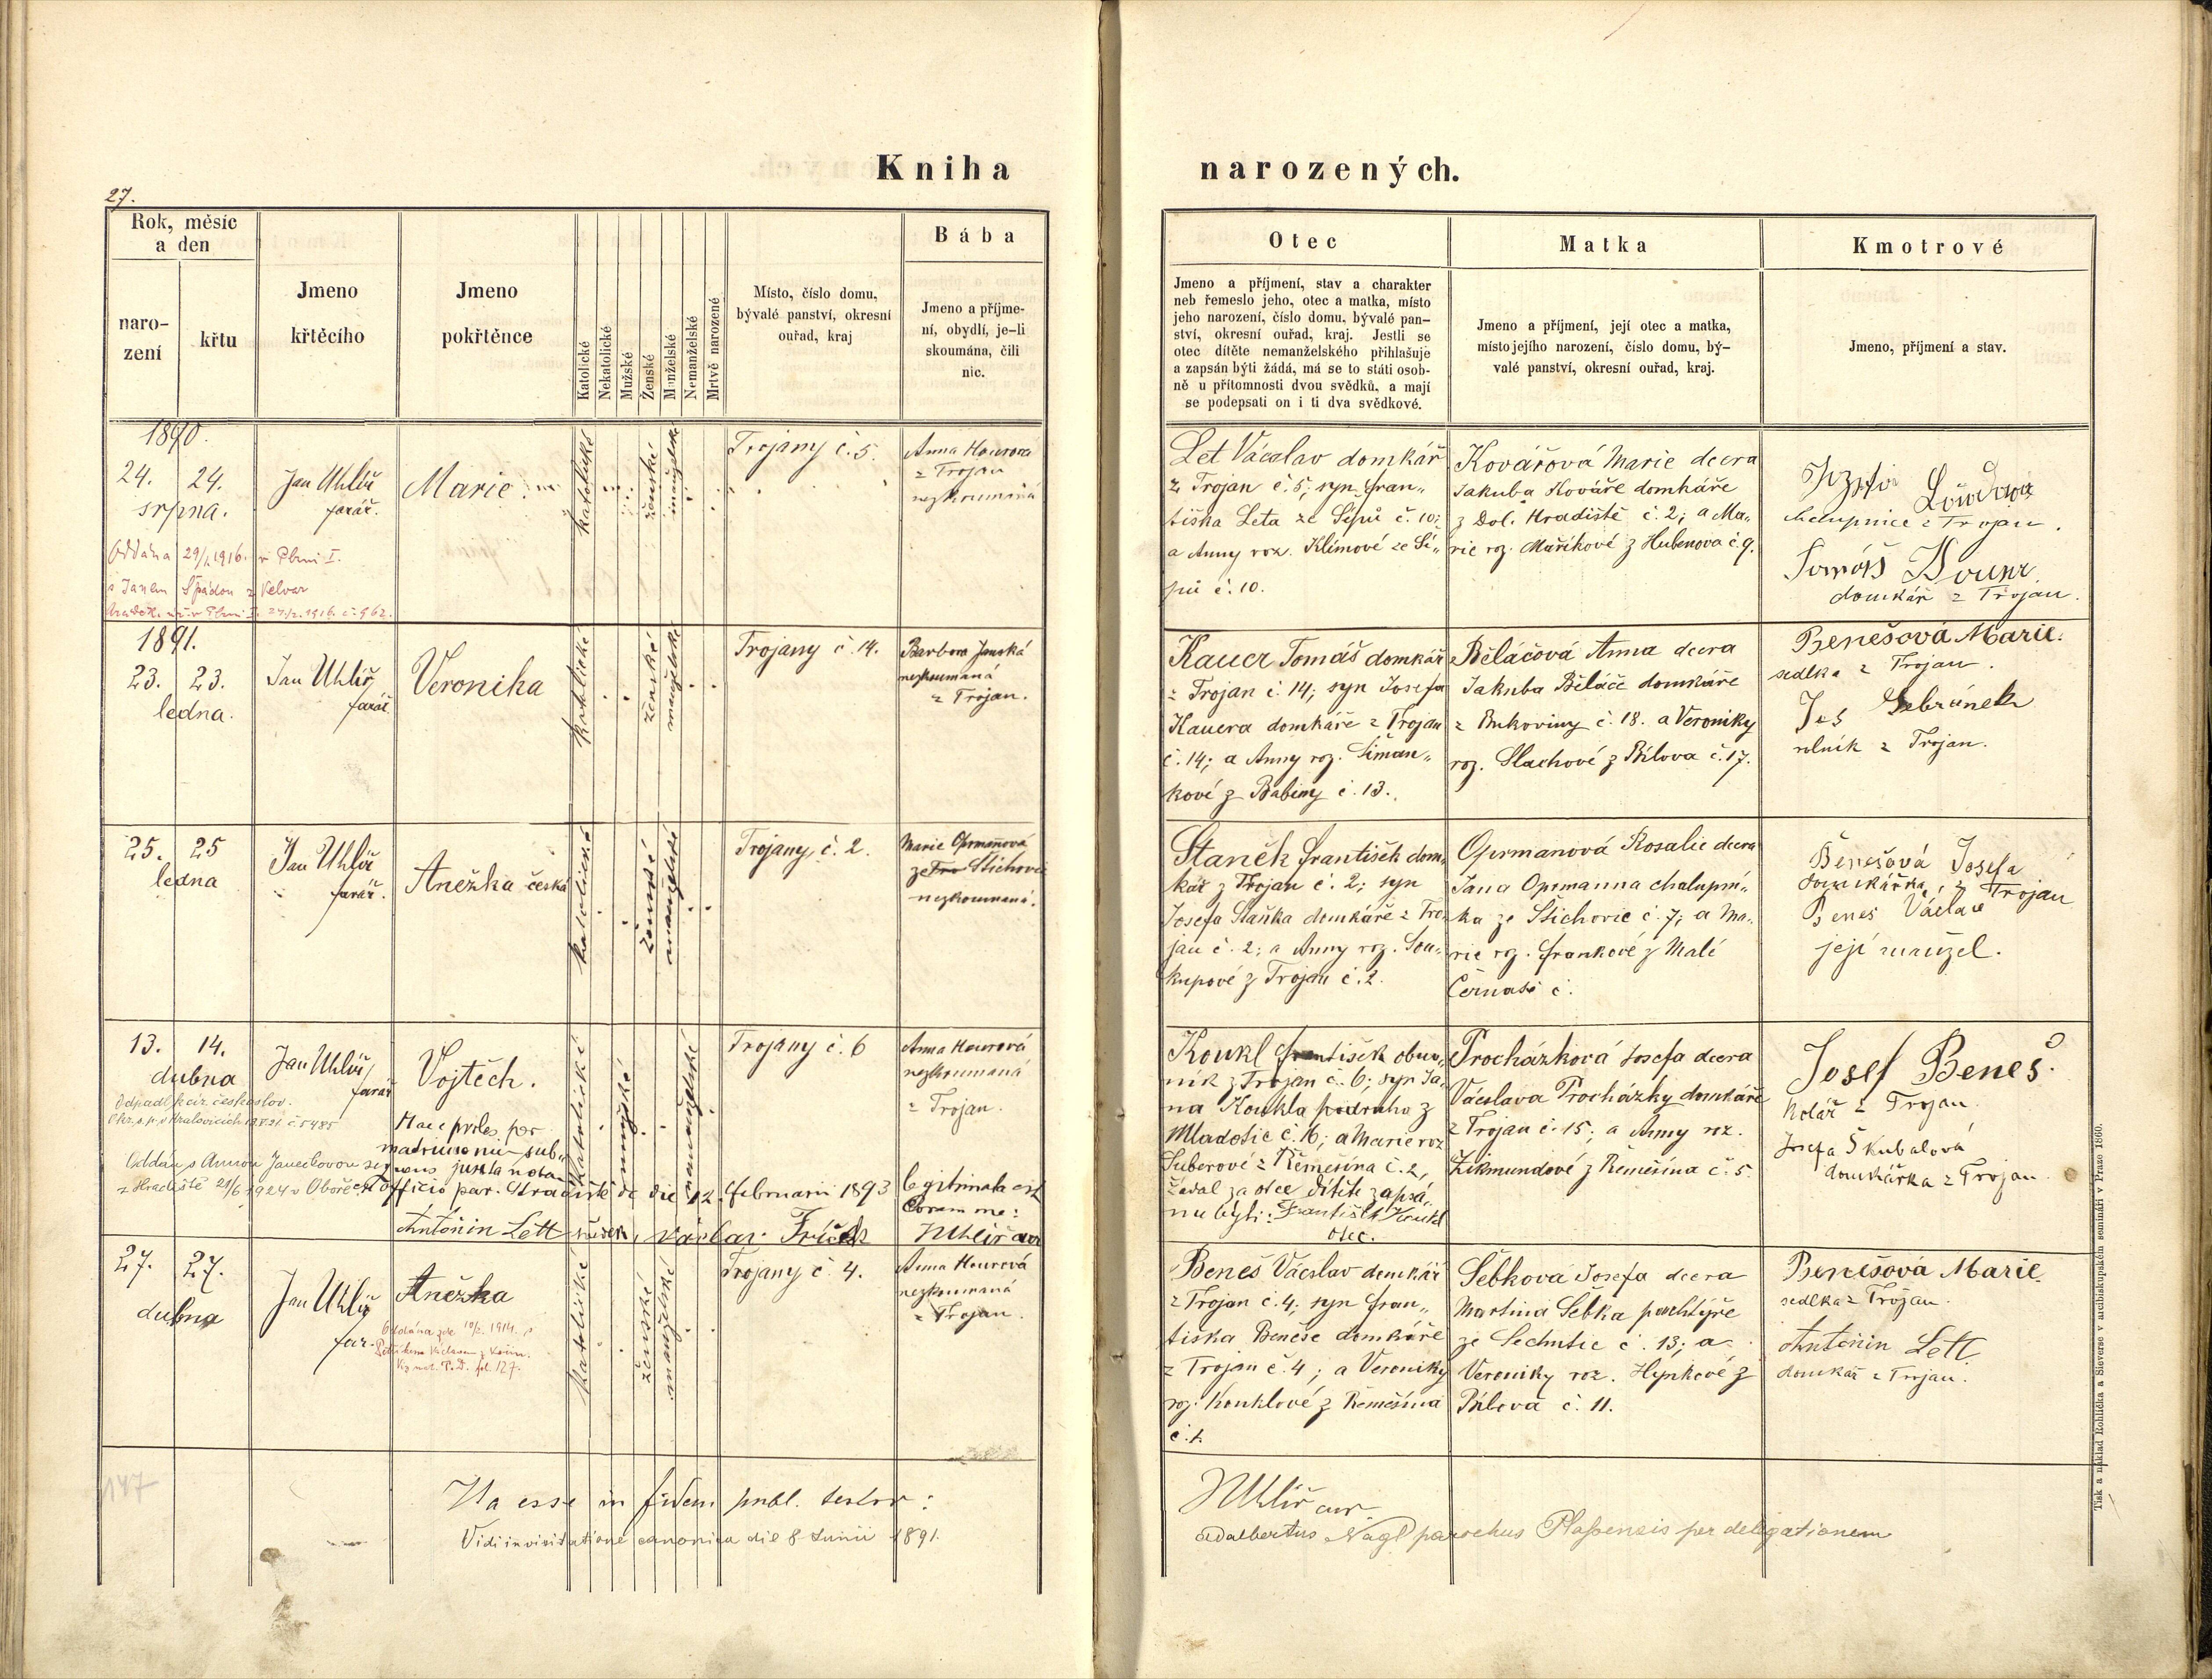 Kniha
narozených.
27.
Rok, měsíc
a den
naro-
zení
křtu
Jmeno
křtěcího
Jmeno
pokřtěnce
Katolické
Nekatolické
Mužské
Ženské
Manželské
Nemanželské
Mrtvě narozené
Místo, číslo domu,
bývalé panství, okresní
ouřad, kraj
Bába
Jmeno a příjme-
ní, obydlí, je-li
skoumána, čili
nic.
Otec
Jmeno a příjmení, stav a charakter
neb řemeslo jeho, otec a matka, místo
jeho narození, číslo domu, bývalé pan-
ství, okresní ouřad, kraj. Jestli se
otec dítěte nemanželského přihlašuje
a zapsán býti žádá, má se to státi osob-
ně u přítomnosti dvou svědků, a mají
se podepsati on i ti dva svědkové.
Matka
Jmeno a příjmení, její otec a matka,
místo jejího narození, číslo domu, bý-
valé panství, okresní ouřad, kraj.
Kmotrové
Jmeno, příjmení a stav.
1890.
24. 24.
srpna.
Oddána 29/1.1916. v Plzni I.
s Janem Špádou z Velvar
Jan Uhlíř
farář.
Marie.
katolické
ženské
manželské
Trojany č. 5.
Anna Hourová
z Trojan
nezkoumaná
Let Václav domkář
z Trojan č. 5; syn Fran„
tiška Leta ze Sípů č. 10;
a Anny roz. Klímové ze Sí„
pů č. 10.
Kovářová Marie dcera
Jakuba Kováře domkáře
z Dol. Hradiště č. 2; a Ma„
rie roz. Maříkové z Hubenova č. 9.
chalupnice z Trojan.
Tomáš
domkář z Trojan.
1891.
23. 23.
ledna.
Jan Uhlíř
farář
Veronika
katolické
ženské
manželské
Trojany č. 14.
Barbora Janská
nezkoumaná
z Trojan.
Kauer Tomáš domkář
z Trojan č. 14; syn Josefa
Kauera domkáře z Trojan
č. 14; a Anny roz. Šiman„
kové z Babiny č. 13.
Běláčová Anna dcera
Jakuba Běláče domkáře
z Bukoviny č. 18. a Veroniky
roz. Slachové z Bílova č. 17.
Benešová Marie.
sedlka z Trojan.
Jos Gebránek
rolník z Trojan.
25. 25
ledna
Jan Uhlíř
farář.
Anežka česká
katolické
ženské
manželské
Trojany, č. 2.
Marie Oprmanová
ze Štichovic
nezkoumaná.
Staněk František dom„
kář z Trojan č. 2; syn
Josefa Staňka domkáře z Tro„
jan č. 2; a Anny roz. Sou„
kupové z Trojan č. 2.
Oprmanová Rosalie dcera
Jana Oprmanna chalupní„
ka ze Štichovic č. 7; a Ma„
rie roz. Frankové z Malé
Černasi č.
Benešová Josefa
domkářka, z Trojan
Beneš Václav
její manžel.
13. 14.
dubna
Odpadl k cír. českoslov.
Oddán s Annou Janečkovou
z Hradiště 21/6 1924 v Oboře
Jan Uhlíř
farář
Vojtěch.
Haec proles per
matrimonium sub„
sequens juxta notam
officio par. Hradiště de die 12. februarii 1893 legitimata est
Coram me:
Antonín Lett svědek, Václav Fríček JUhlíř cur
katolické
mužské
manželské
Trojany č. 6
Anna Hourová
nezkoumaná
z Trojan.
Koukl František obuv„
ník z Trojan č. 6; syn Ja„
na Koukla podruha z
Mladotic č. 16; a Marie roz
Suberové z Řemešína č. 2,
žádal za otce dítěte zapsá„
nu býti: František Koukl
otec.
Procházková Josefa dcera
Václava Procházky domkáře
z Trojan č. 15; a Anny roz.
Zikmundové z Řemešína č. 5.
Josef Beneš.
Kolář z Trojan
Josefa Škubalová
domkářka z Trojan
27. 27.
dubna
Jan Uhlíř
far.
Anežka
Oddána zde 10/2. 1914. s
katolické
ženské
manželské
Trojany č. 4.
Anna Hourová
nezkoumaná
z Trojan.
Beneš Václav domkář
z Trojan č. 4; syn Fran„
tiška Beneše domkáře
z Trojan č. 4; a Veroniky
roz. Kouklové z Řemešína
č. 1.
Šebková Josefa dcera
Martina Šebka pachtýře
ze Sechutic č. 13; a
Veroniky roz. Hynkové z
Bílova č. 11.
Benešová Marie
sedlka z Trojan.
Antonín Lett
domkář z Trojan.
147
Ita esse in fidem publ. testor:
JUhlíř cur
Vidi in visitatione canonica die 8 Junii 1891.
Adalbertus Nagl parochus Plassensis per delegationem
Tisk a náklad Rohlíčka a Sieverse v arcibiskupském semináři v Praze 1860.